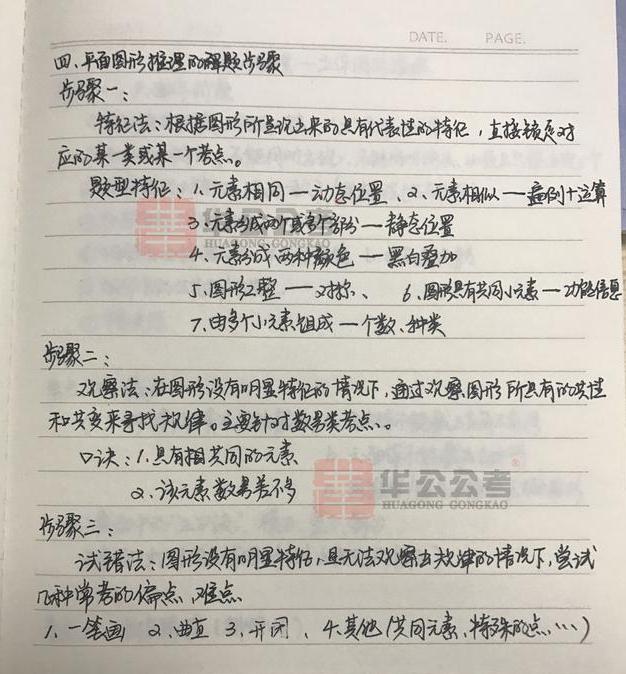 DATE. PAGE.
四、平面图形推理的解题步骤
步骤一：
特征法：根据图形所呈现出来的具有代表性的特征，直接锁定对
应的某一类或某一个考点。
题型特征：1.元素相同—动态位置、2.元素相似—遍历+运算
3.元素分成两个或多个部分—静态位置
4.元素分成两种颜色—黑白叠加
5.图形工整—对称、 6.图形具有共同小元素—功能信息
7.由多个小元素组成—个数、种类
步骤二：
观察法：在图形没有明显特征的情况下，通过观察图形所具有的共性
和共变来寻找规律。主要针对数量类考点。
口诀：1.具有相共同的元素
2.该元素数量差不多
步骤三：
试错法：图形没有明显特征，且无法观察出规律的情况下，尝试
几种常考的偏点、难点
1.一笔画 2.曲直 3.开闭、4.其他（共同元素、特殊的点…）
華 华公公考
HUAGONG GONGKAO
華 华公公考
HUAGONG GONGKAO